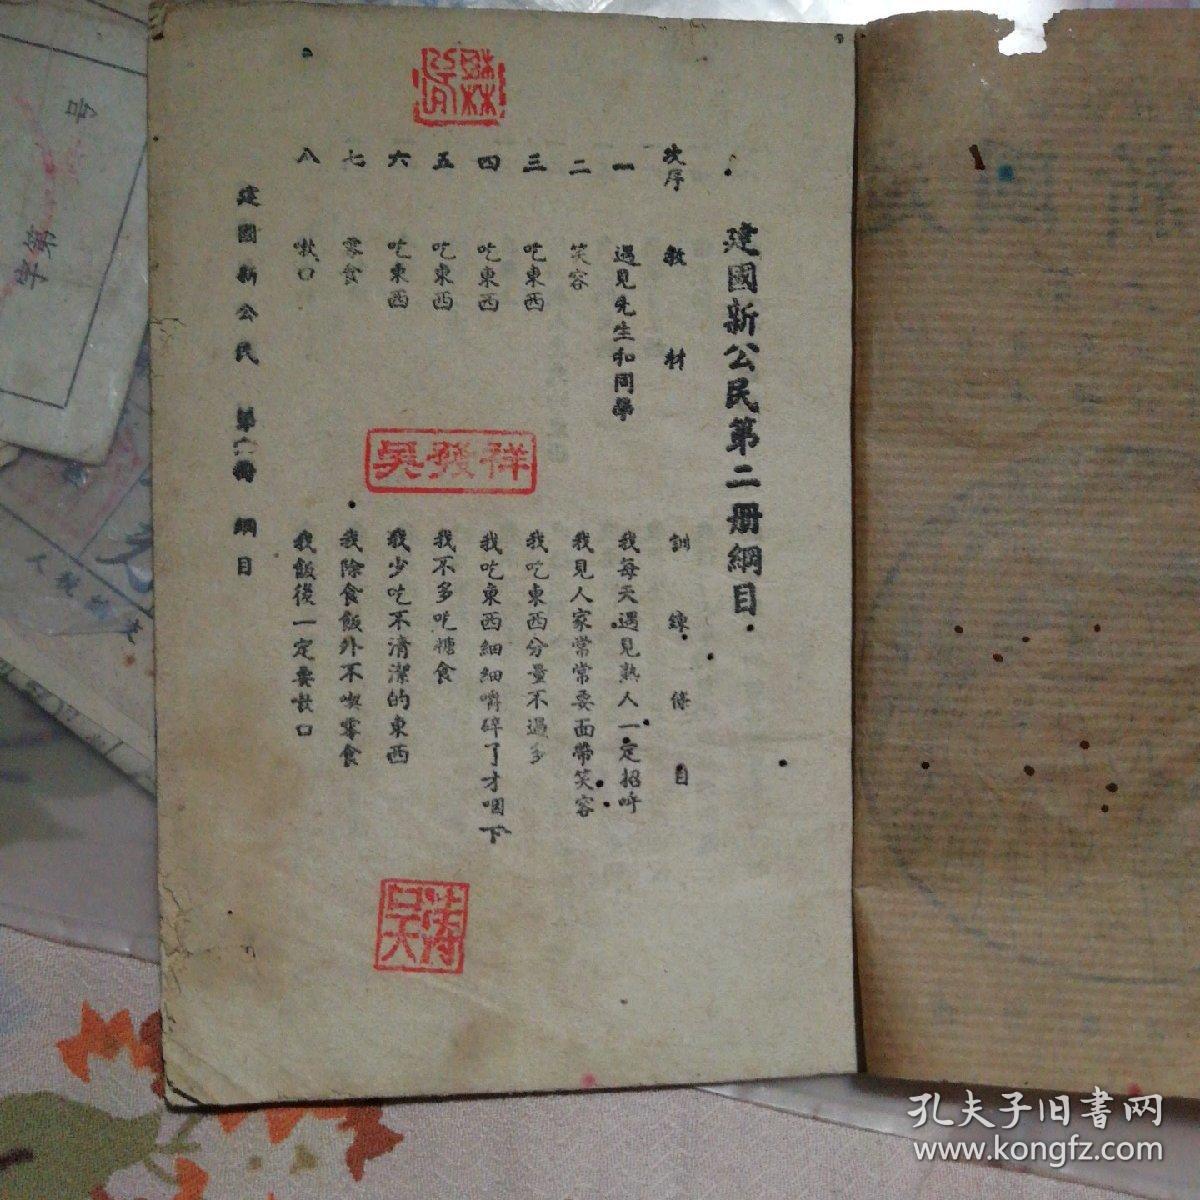 建國新公民第二册綱目
次序 教材 訓練條目
一 遇見先生和同學 我每天遇見熟人一定招呼
二 笑容 我見人家常常要面帶笑容
三 吃東西 我吃東西分量不過多
四 吃東西 我吃東西細細嚼碎了才咽下
五 吃東西 我不多吃糖食
六 吃東西 我少吃不清潔的東西
七 零食 我除食飯外不喫零食
八 漱口 我飯後一定要漱口
建國新公民 第二冊 綱目
吴發祥
吴濤
号
字第
孔夫子旧書网
www.kongfz.com